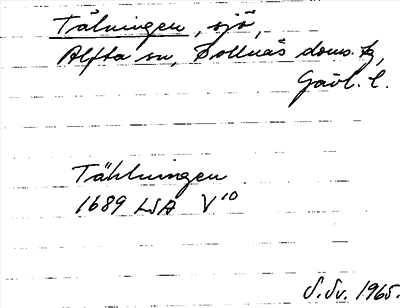 Tälningen, sjö,
Alfta sn, Bollnäs doms. 
Gävl. l.
Tählningen
1689 LSA V¹⁰
S.Sv. 1965.